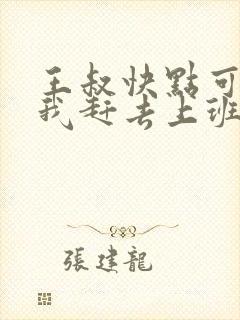 王叔快點可
我赶去上班
張建龍